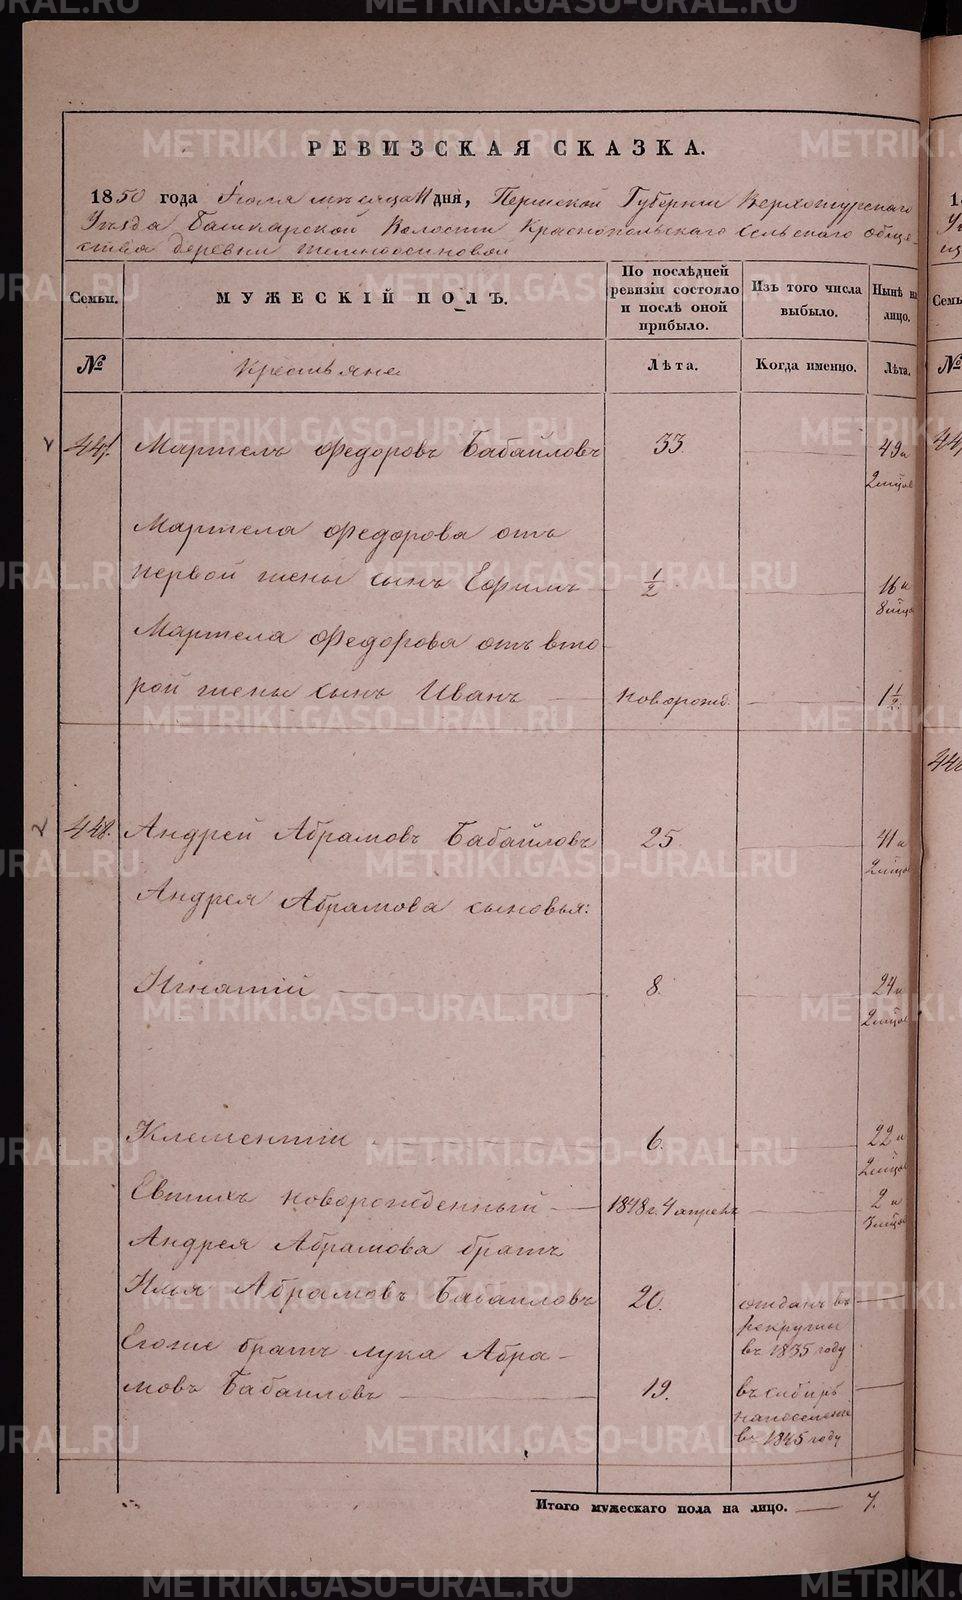 РЕВИЗСКАЯ СКАЗКА.
1850 года Іюля мѣсяца 11 дня, Пермской Губерніи Верхотурскаго
Уѣзда Башкарской Волости Краснопольскаго Сельскаго обще-
ства деревни
Семьи.
МУЖЕСКІЙ ПОЛЪ.
По послѣдней ревизіи состояло и послѣ оной прибыло.
Изъ того числа выбыло.
Нынѣ на лицо.
№
Крестьяне
Лѣта.
Когда именно.
Лѣта.
447. Мартелъ Федоровъ Бабайловъ 33 49 и 2 мѣцов
Мартела Федорова отъ
первой жены сынъ Ефимъ 1/2 16 и 8 мѣцо
Мартела Федорова отъ вто-
рой жены сынъ Иванъ новорожд. 1 1/2.
448. Андрей Абрамовъ Бабайловъ 25. 41 и 2 мѣцов
Андрея Абрамова сыновья:
Игнатій 8. 24 и 2 мѣцов
Клементій 6. 22 и 2 мѣцов
Евтихъ новорожденный 1848 г. 4 апрель 2 и 3 мѣцов
Андрея Абрамова братъ
Илья Абрамовъ Бабайловъ 20. отданъ въ
рекруты
въ 1835 году
Егоже братъ Лука Абра-
мовъ Бабайловъ 19. въ сибирь
на поселеніе
въ 1845 году
Итого мужескаго пола на лицо. 7.
METRIKI.GASO-URAL.RU